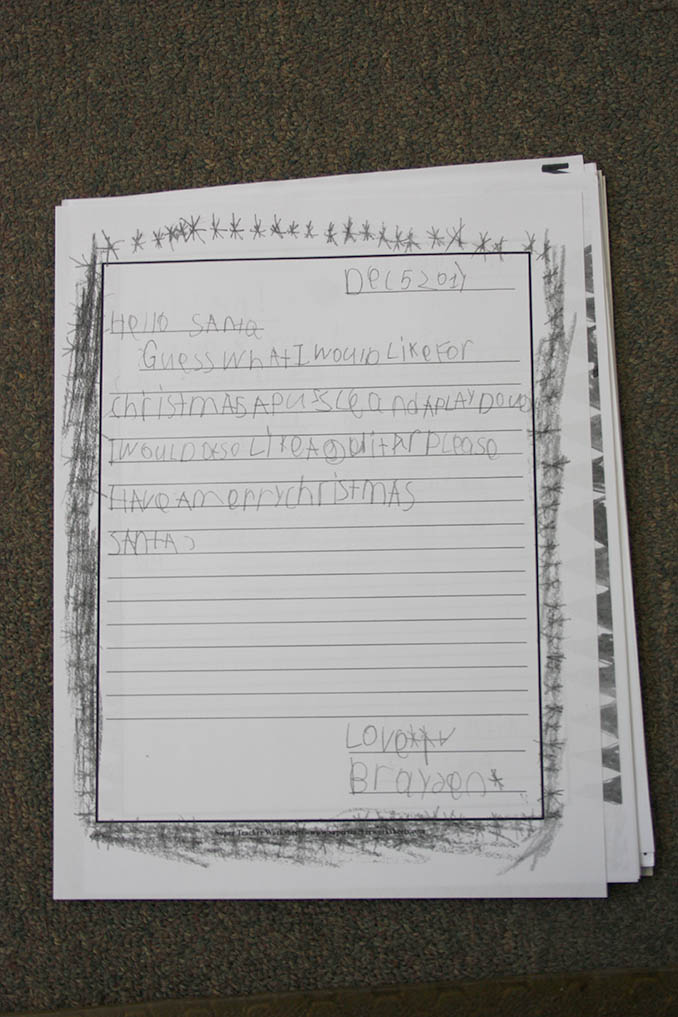 DEC 5 201)
Hello SANta
Guess whAt I would Like For
christmas A pussle and A PLAY DOUO
I would also Like A guitar please
HAve A merry christmAS
SANTA
Love
Brayden
Super Teacher Worksheets - www.superteacherworksheets.com